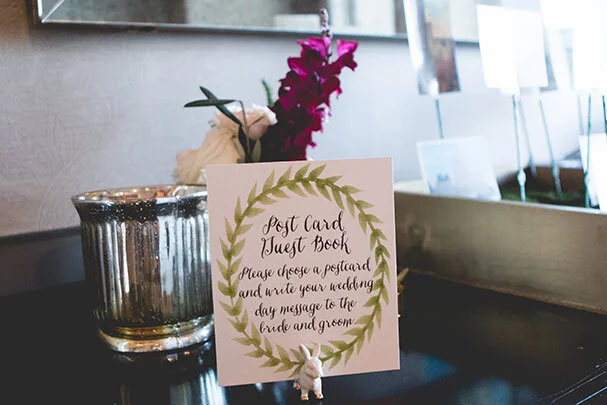 Post Card
Guest Book
Please choose a postcard
and write your wedding
day message to the
bride and groom.